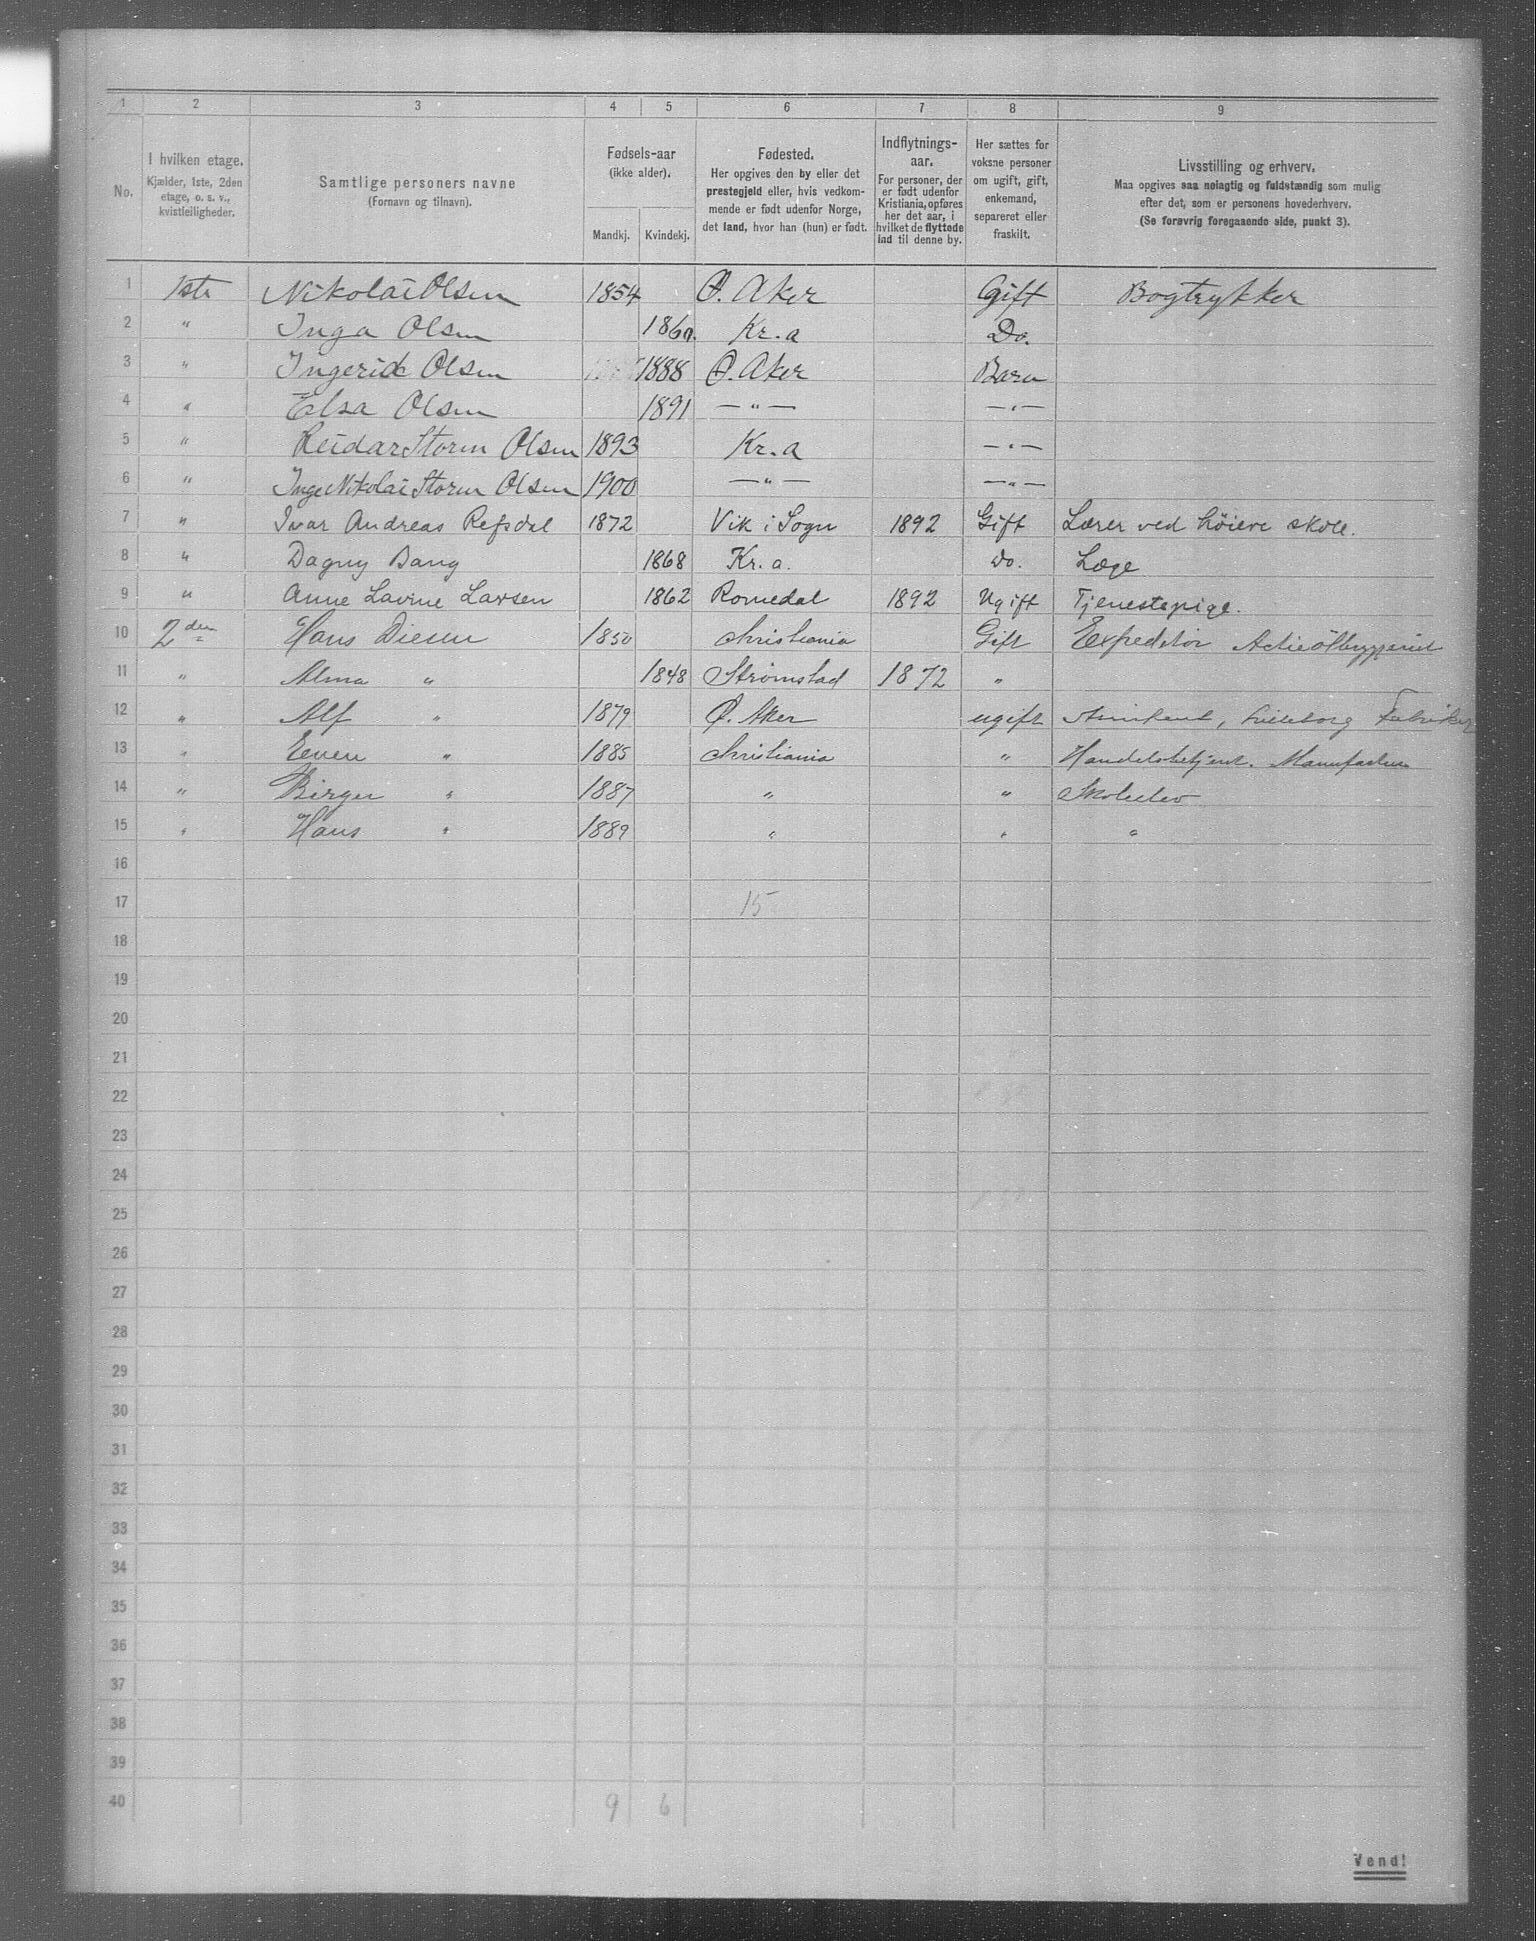 1 2 3 4 5 6 7 8 9
No.
I hvilken etage.
Kjælder, 1ste, 2den
etage, o. s. v.,
kvistleiligheder.
Samtlige personers navne
(Fornavn og tilnavn).
Fødsels-aar
(ikke alder).
Mandkj. Kvindekj.
Fødested.
Her opgives den by eller det
prestegjeld eller, hvis vedkom-
mende er født udenfor Norge,
det land, hvor han (hun) er født.
Indflytnings-
aar.
For personer, der
er født udenfor
Kristiania, opføres
her det aar, i
hvilket de flyttede
ind til denne by.
Her sættes for
voksne personer
om ugift, gift,
enkemand,
separeret eller
fraskilt.
Livsstilling og erhverv.
Maa opgives saa nøiagtig og fuldstændig som mulig
efter det, som er personens hovederhverv.
(Se forøvrig foregaaende side, punkt 3).
1 1ste Nikolai Olsen 1854 Ø. Aker Gift Bogtrykker
2 " Inga Olsen Kr.a Do.
3 " Ingerid Olsen 1888 Ø. Aker Barn
4 " Elsa Olsen 1891 — " — — " —
5 " Reidar Storm Olsen 1893 Kr.a — " —
6 " Inge Nikolai Storm Olsen 1900 — " — — " —
7 " Ivar Andreas Refsdal 1872 Vik i Sogn 1892 Gift Lærer ved høiere skole.
8 " Dagny Bang 1868 Kr.a. do. Læge
9 " Anne Lavine Larsen 1862 Romedal 1892 Ugift Tjenestepige.
10 2den Hans Diesen 1850 Christiania Gift Expeditör Actieölbryggeriet
11 " Alma " 1848 Strømstad 1872 "
12 " Alf " 1879 Ø. Aker ugift Assistent, Lilleborg Fabriker
13 " Even " 1885 Christiania " Handelsbetjent. Manufactur
14 " Birger " 1887 " " Skoleelev
15 " Hans " 1889 " " "
16
17 15
18
19
20
21
22
23
24
25
26
27
28
29
30
31
32
33
34
35
36
37
38
39
40 9 6
Vend!